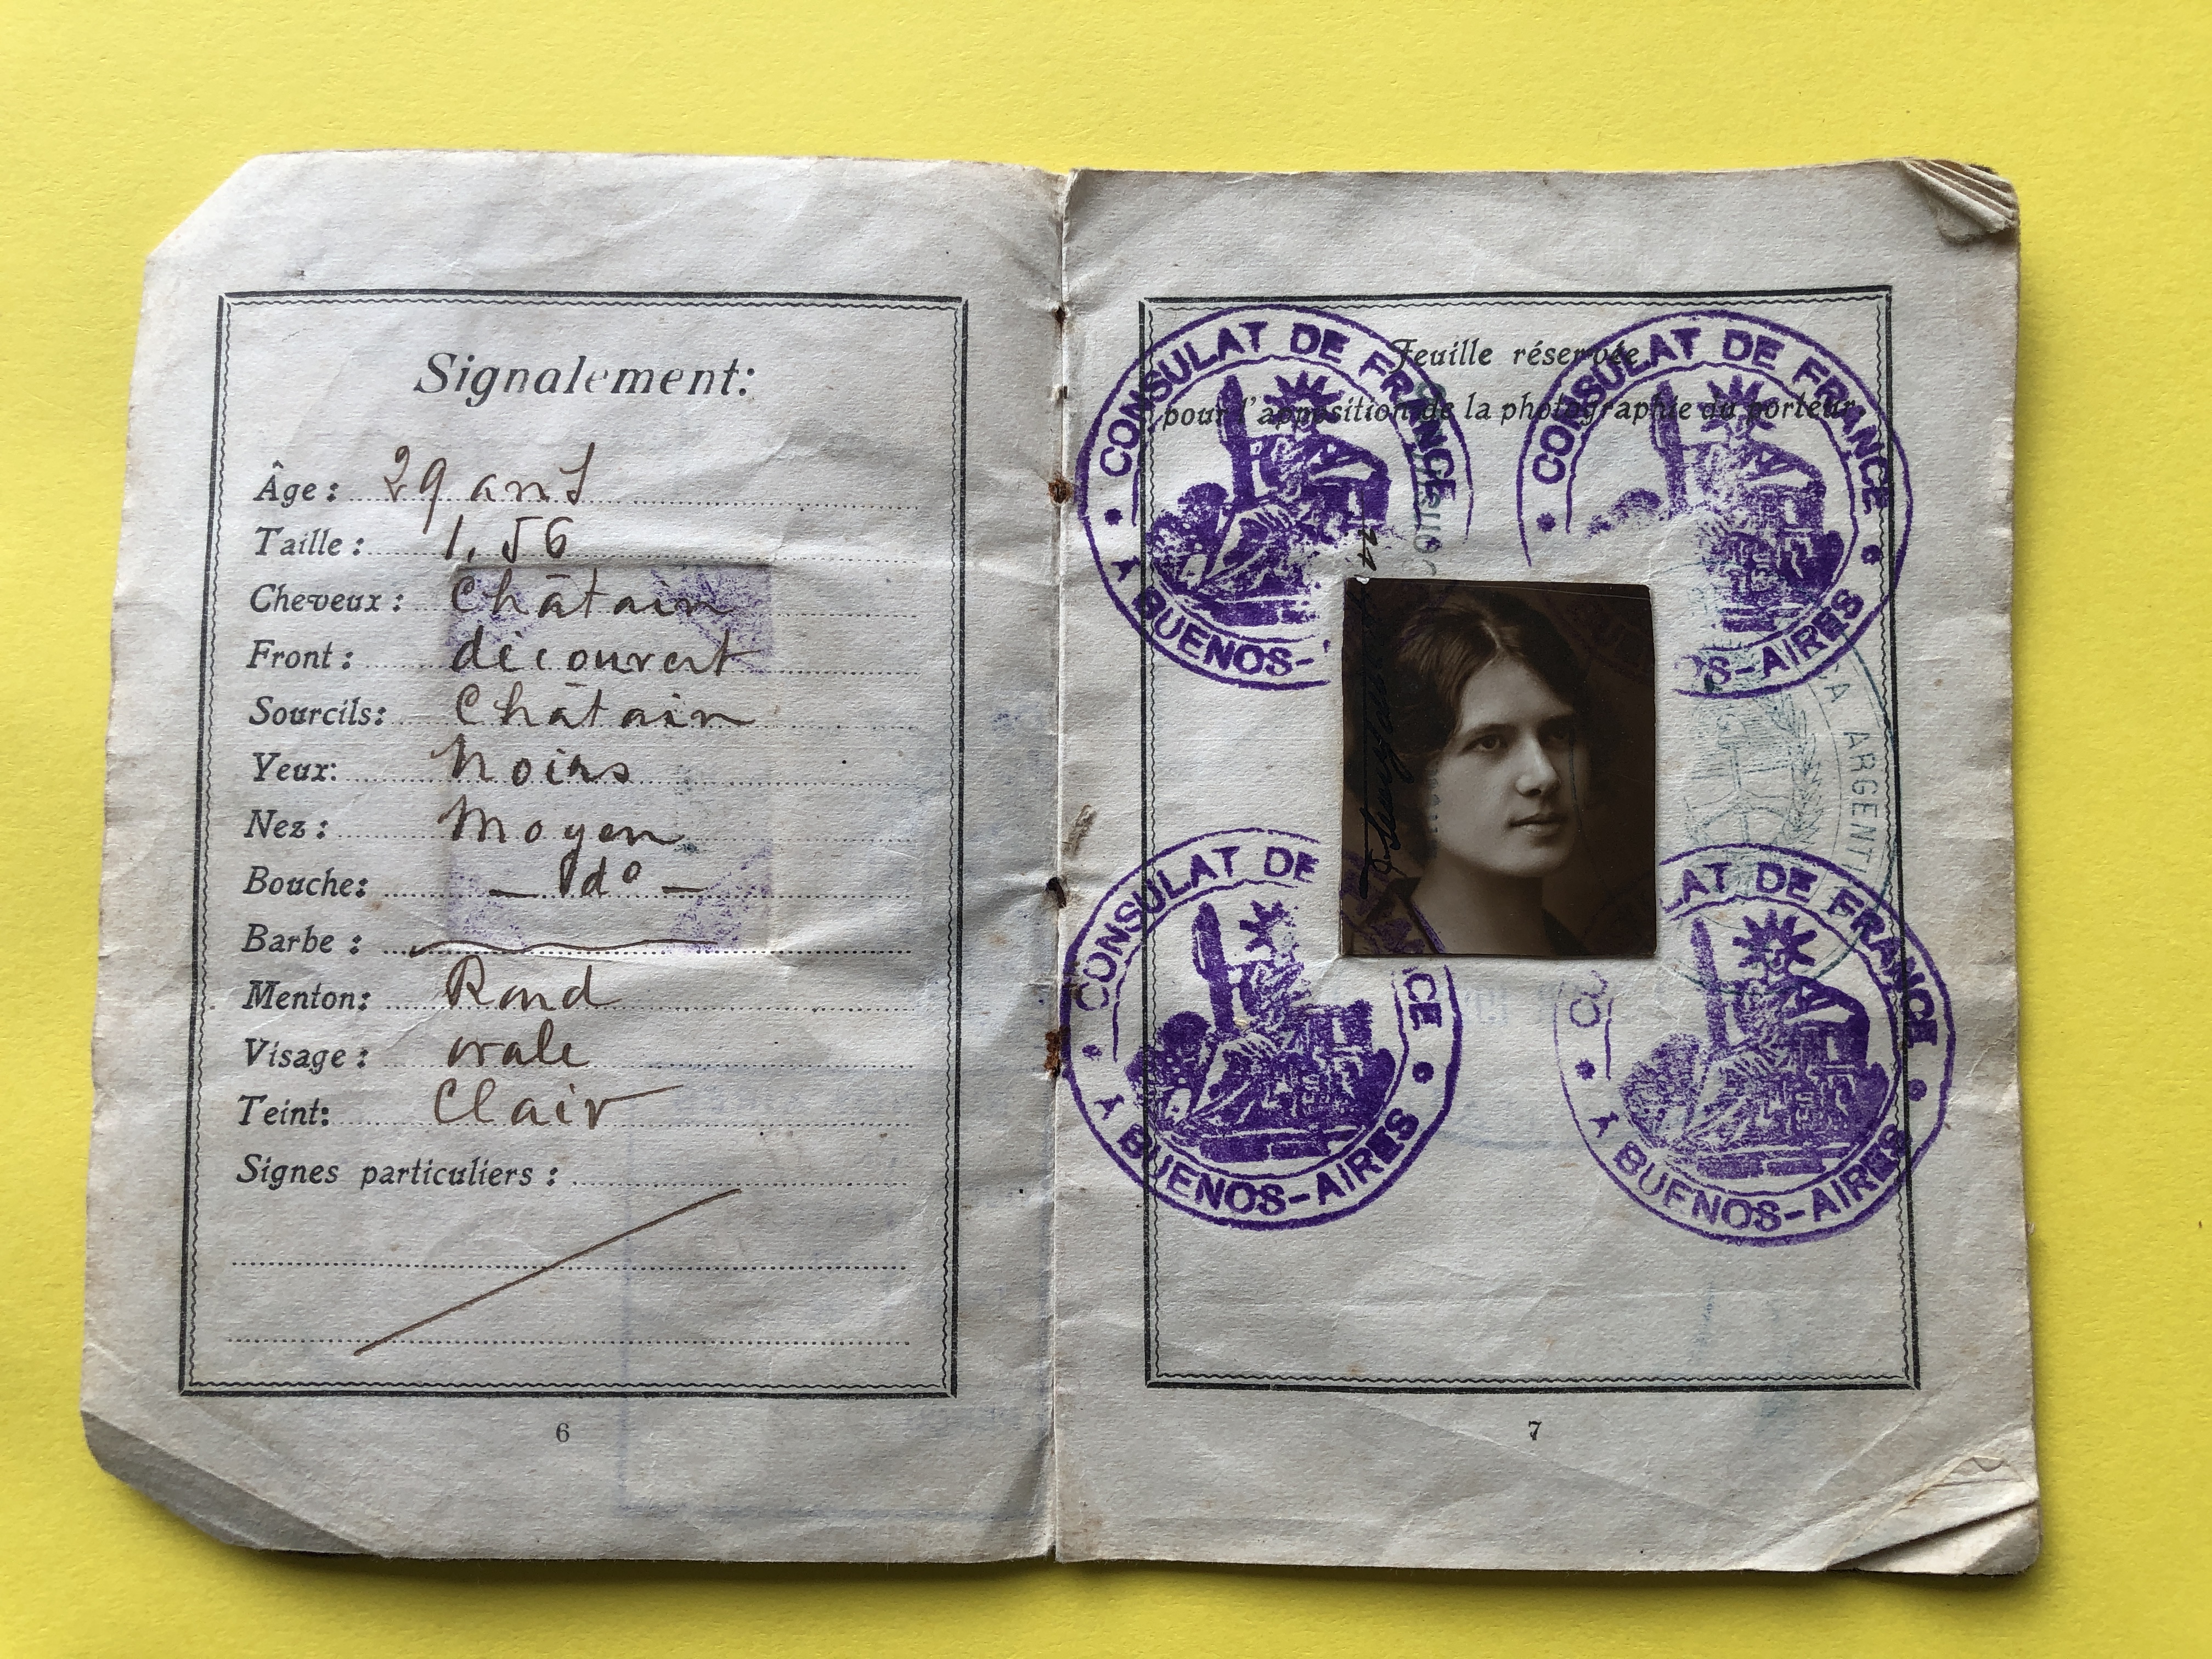 Signalement:
Âge : 29 ans
Taille : 1,56
Cheveux : Châtain
Front : découvert
Sourcils: Châtain
Yeux: Noirs
Nez : Moyen
Bouche: — do —
Barbe :
Menton: Rond
Visage : ovale
Teint: Clair
Signes particuliers :
6
Feuille réservée
pour l'apposition de la photographie du porteur
CONSULAT DE FRANCE
A BUENOS-
CONSULAT DE FRANCE
S-AIRES
CA ARGENT
CONSULAT DE CE
A BUENOS-AIRES
LAT DE FRANCE
CO
A BUENOS-AIRES
7